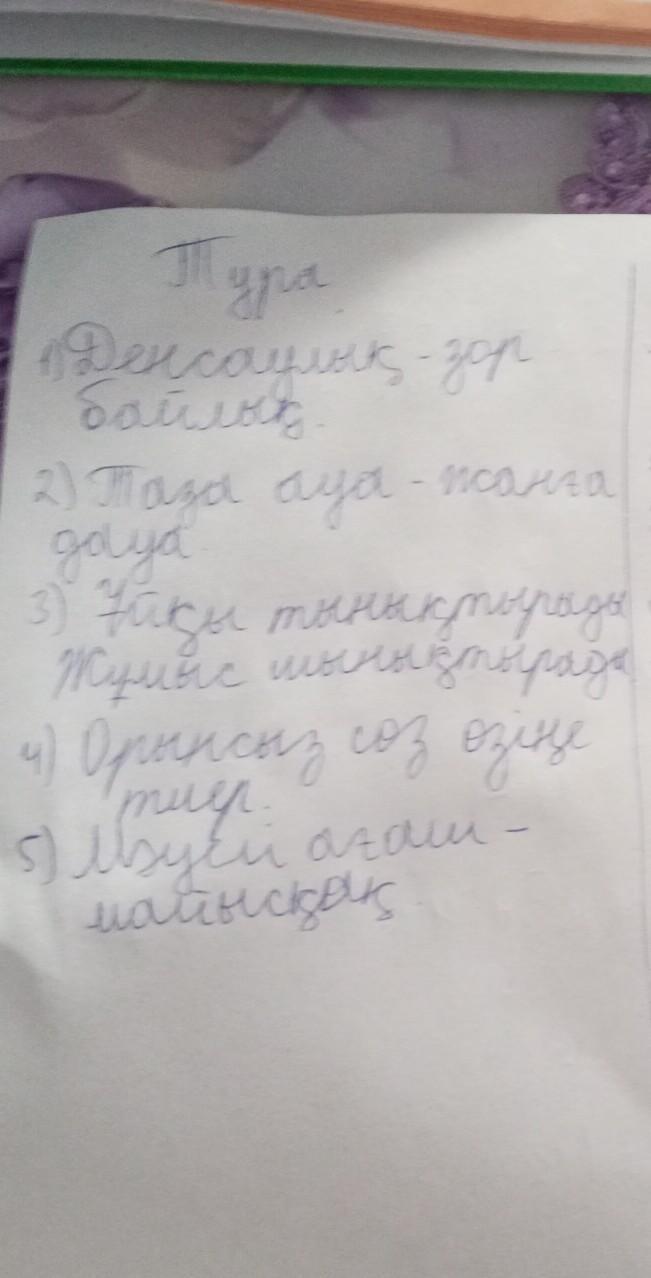 Тура
1) Денсаулық - зор
байлық.
2) Таза ауа - жанға
дауа
3) Ұйқы тынықтырады
Жұмыс шынықтырады
4) Орынсыз сөз өзіңе
тиер.
5) Мәуелі ағаш -
майысқақ